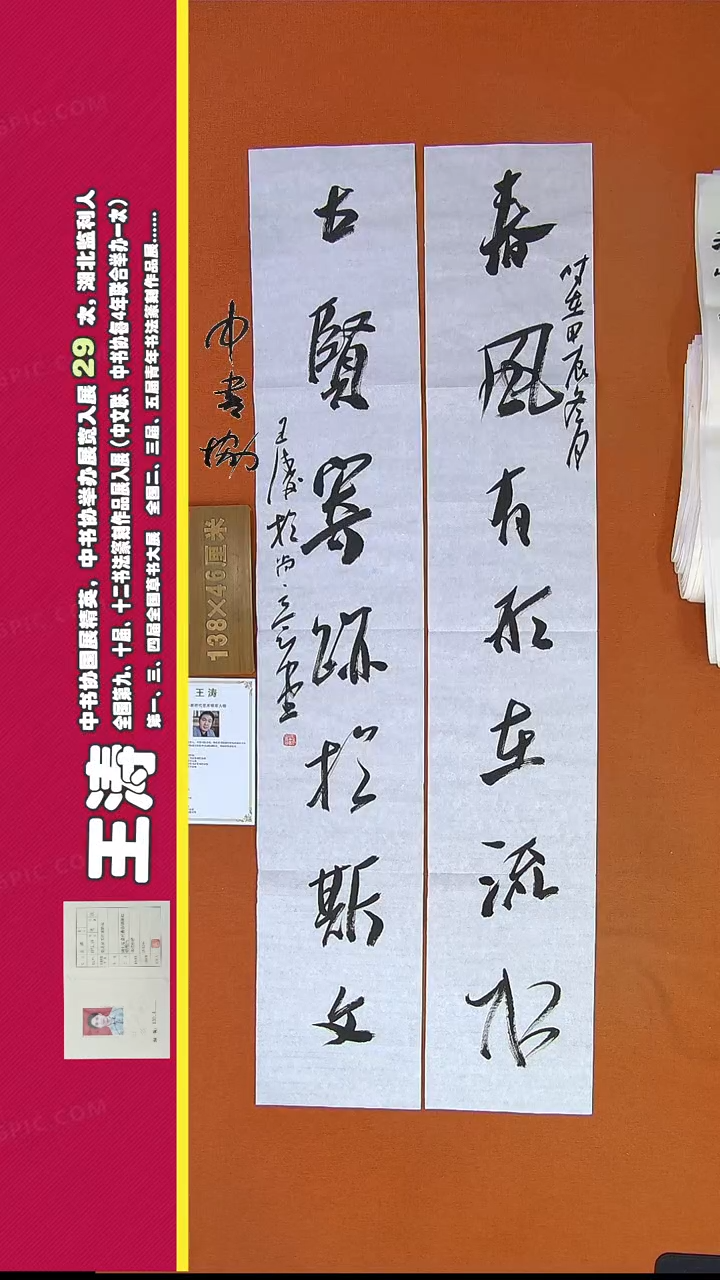 春风有形在流水
时在甲辰冬月
古賢寄跡於斯文
王涛於尚意堂
中书协
138×46厘米
王涛
王涛
中书协国展精英，中书协举办展赛入展 29 次，湖北监利人
全国第九、十届、十二书法篆刻作品展入展（中文联、中书协每4年联合举办一次）
第一、三、四届全国草书大展 全国二、三届、五届青年书法篆刻作品展......